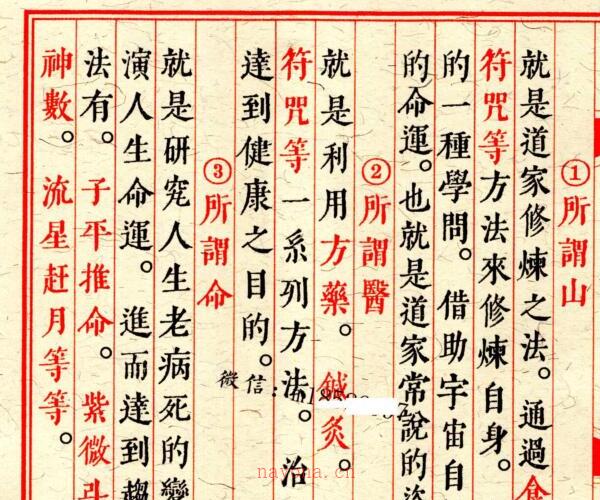 ①所謂山
就是道家修煉之法。通過食
符咒等方法來修煉自身。
的一種學問。借助宇宙自
的命運。也就是道家常說的
②所謂醫
就是利用方藥。鍼灸。
符咒等一系列方法。治
達到健康之目的。
③所謂命
就是研究人生老病死的變
演人生命運。進而達到趨
法有。子平推命。紫微斗
神數。流星赶月等等。
微信:
nayona.cn